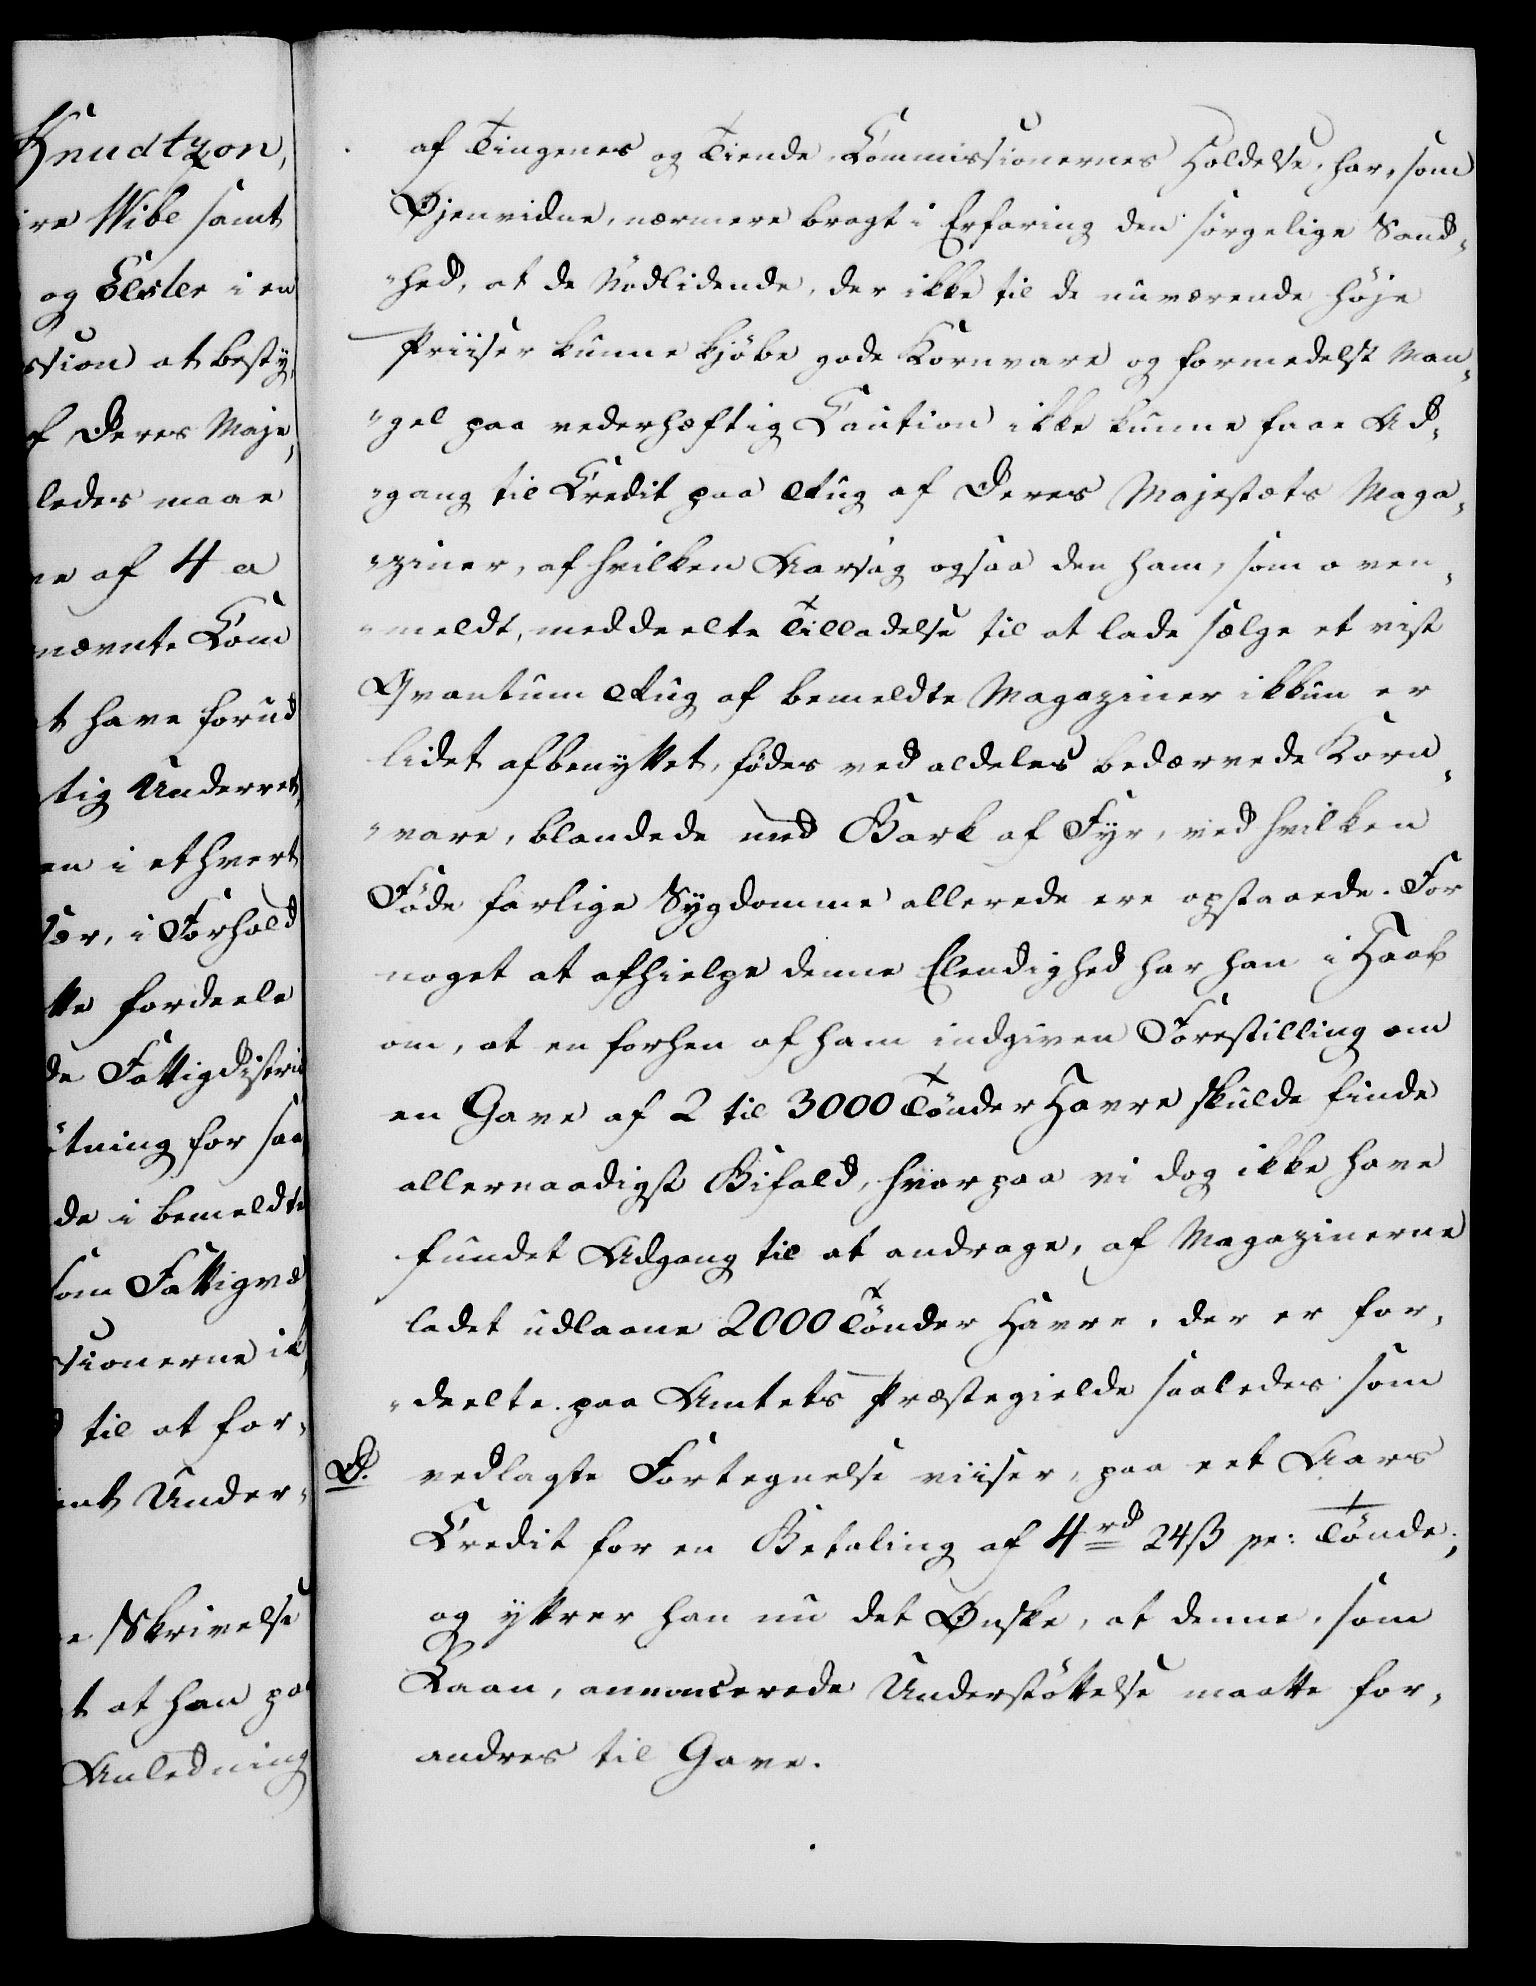 Knudtzon,
ire Wibe samt
og Elster i en
ssion at besty,
f Deres Maje,
ledes maae
ne af 4 a
nævnte Com
t have forud
tig Underret,
en i ethvert
ær, i Forhold
tte fordeele
de Fattigdistric
tning for saa
de i bemeldte
som Fattigvæ
sionerne ik,
til at for,
ent Under,
e Skrivelse
t at han paa
Anledning
af Tingenes og Tiende Commissionernes Holdelse, har, som
Øjenvidne, nærmere bragt i Erfaring den sørgelige Sand,
"hed, at de Nødlidende, der ikke til de nuværende høje
Priiser kunne kjøbe gode Kornvare og formedelst Man,
"gel paa vederhæftig Caution ikke kunne faae Ad,
"gang til Credit paa Rug af Deres Majestæts Maga,
"ziner, af hvilken Aarsag ogsaa den ham, som oven,
"meldt, meddeelte Tilladelse til at lade sælge et vist
Qvantum Rug af bemeldte Magaziner ikkun er
lidet afbenyttet, fødes ved aldeles bedærvede Korn,
"vare, blandede med Bark af Fyr, ved hvilken
Føde farlige Sygdomme allerede ere opstaaede. For
noget at afhielpe denne Elendighed har han i Haab
om, at en forhen af ham indgiven Forestilling om
en Gave af 2 til 3000 Tønder Havre skulde finde
allernaadigst Bifald, hvorpaa vi dog ikke have
fundet Adgang til at andrage, af Magazinerne
ladet udlaane 2000 Tønder Havre, der er for,
"deelte paa Amtets Præstegielde saaledes som
D. vedlagte Fortegnelse viiser, paa eet Aars
Credit for en Betaling af 4 rd 24 ß pr: Tønde;
og yttrer han nu det Ønske, at denne, som
Laan, annoncerede Understøttelse maatte for,
andres til Gave.